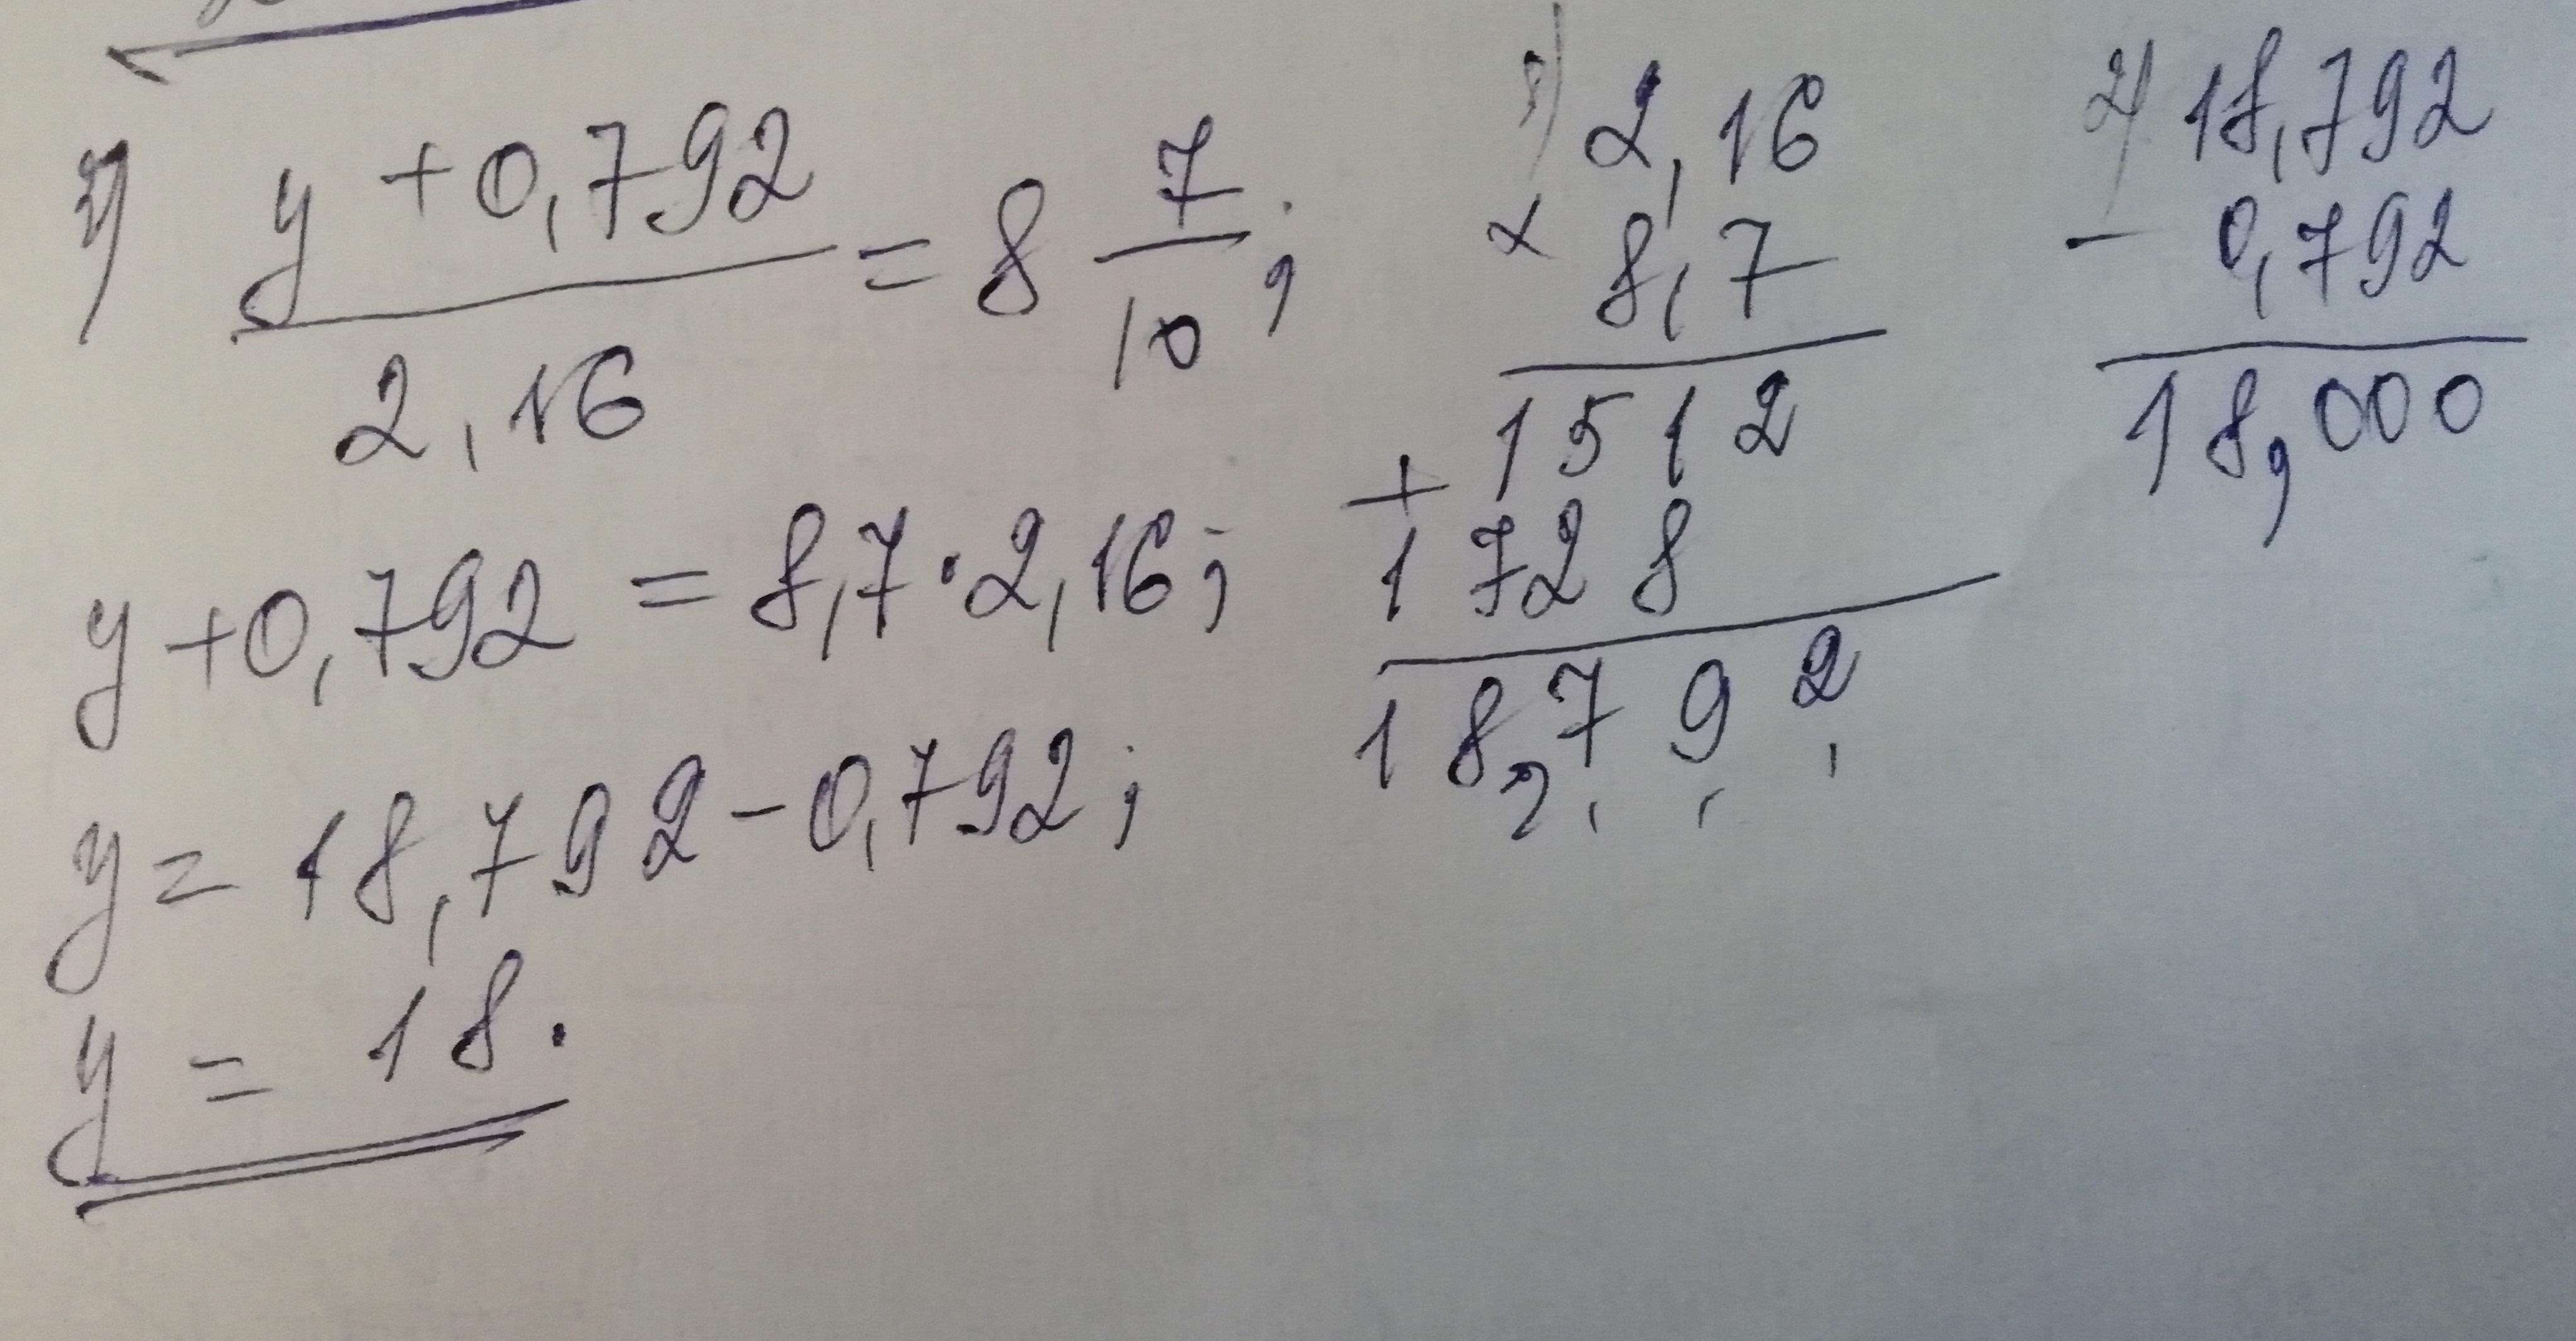 y + 0,792
= 8 7/10 ;
2,16
y + 0,792 = 8,7 · 2,16 ;
y = 18,792 - 0,792 ;
y = 18.
2,16
× 8,7
1512
+ 1728
18,792
2) 18,792
- 0,792
18,000